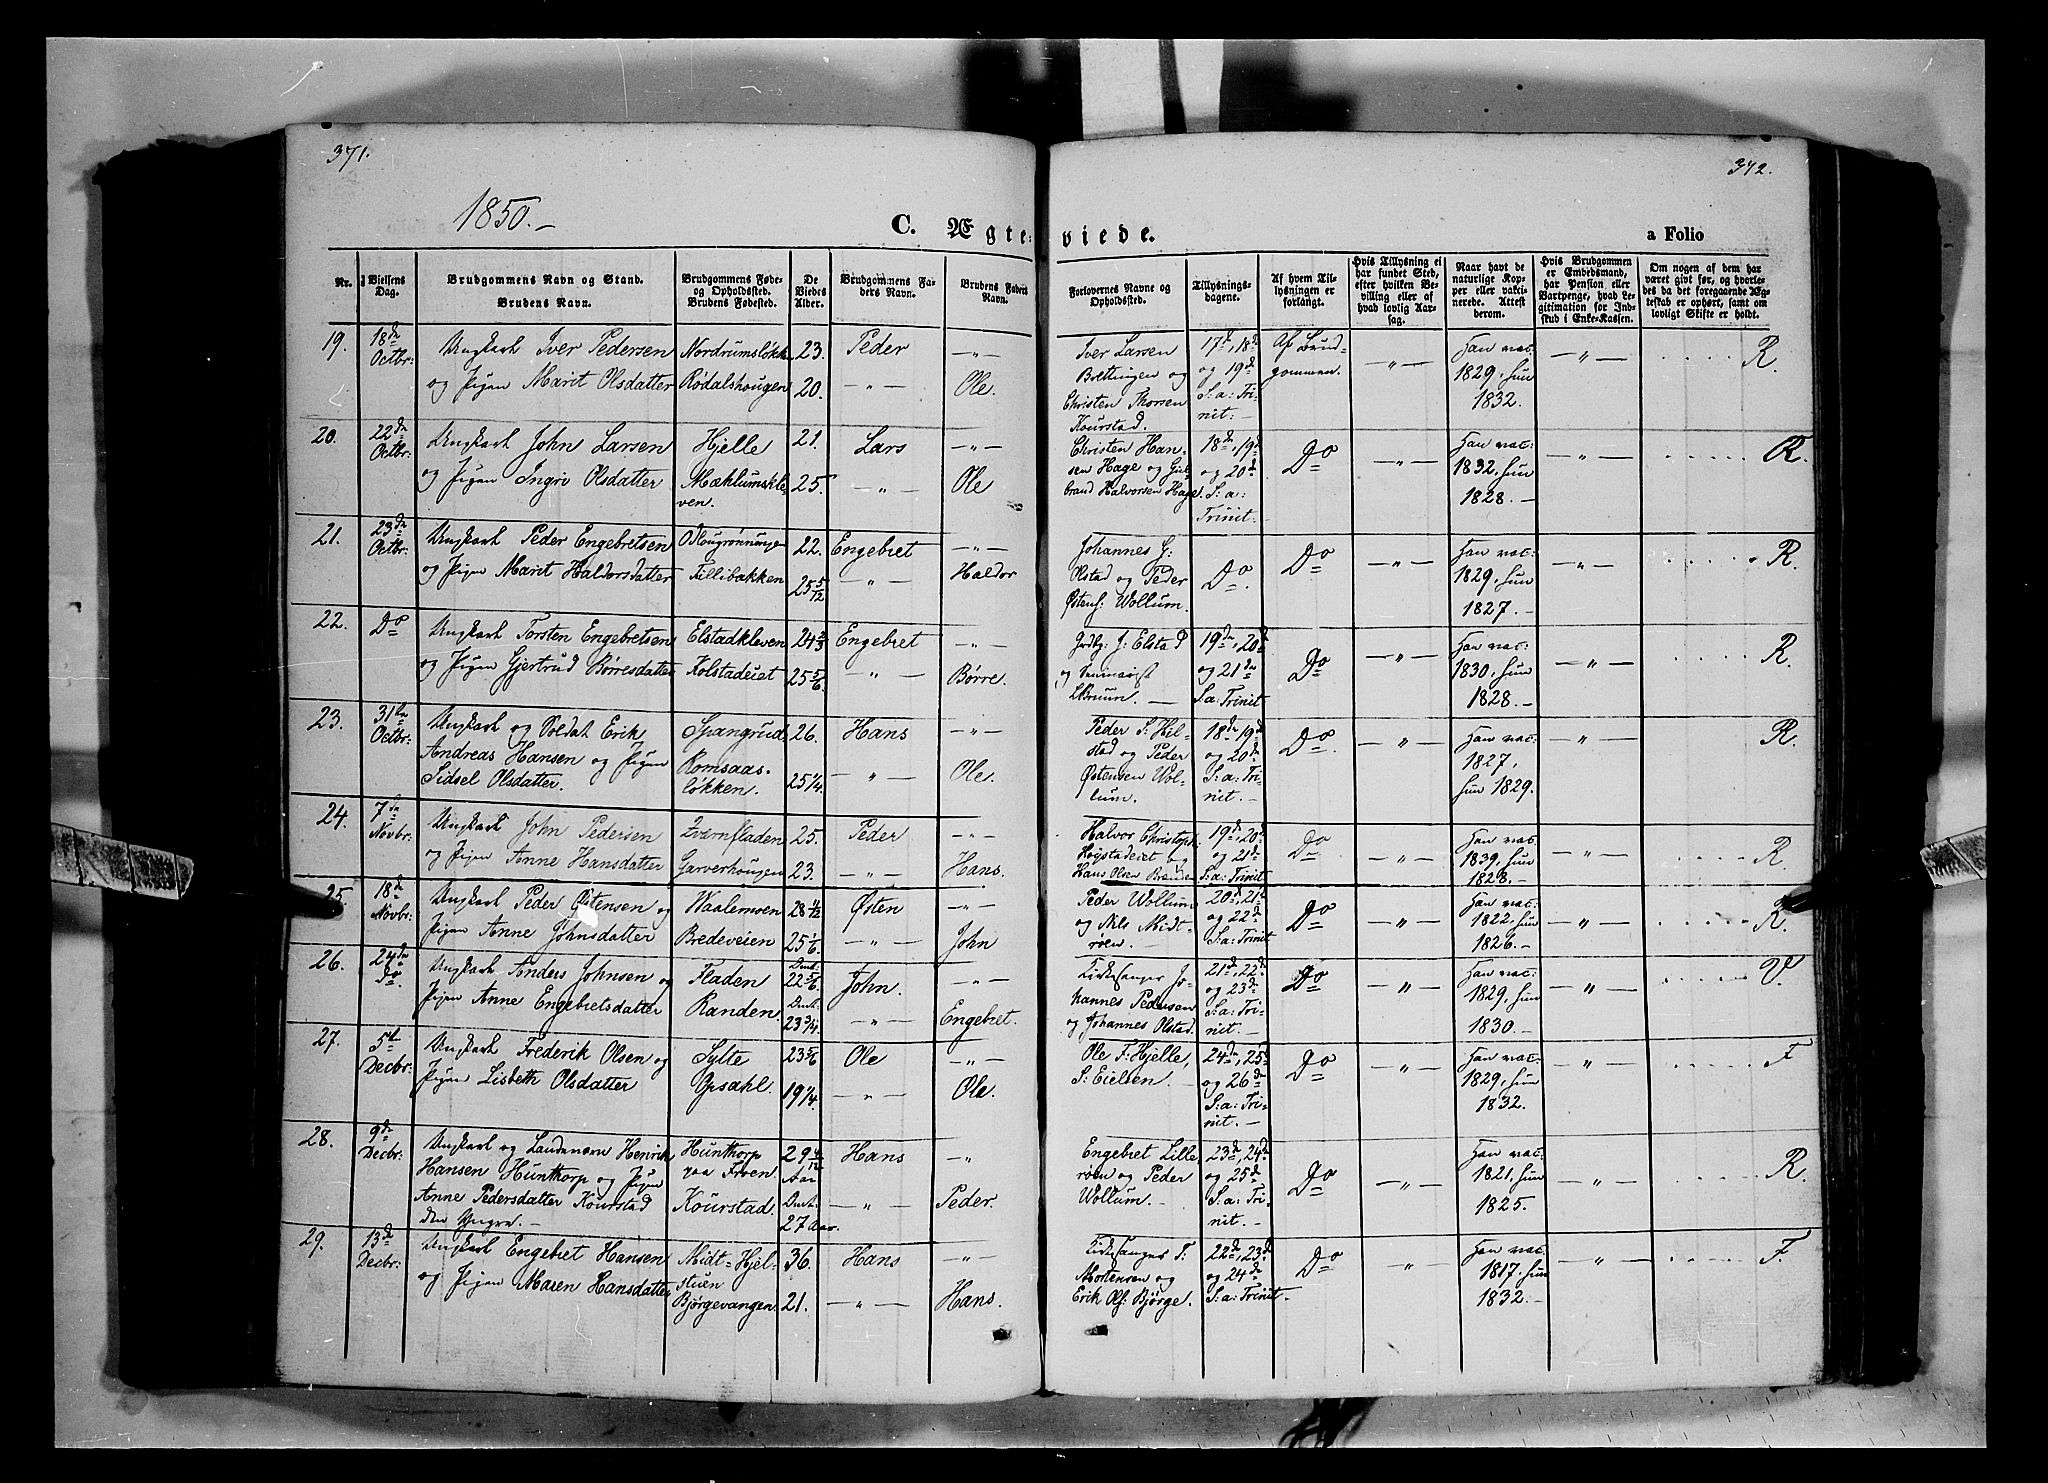 371.
372.
1850.-
C. Ægteviede.
a Folio
Nr.
Vielsens Dag.
Brudgommens Navn og Stand.
Brudens Navn.
Brudgommens Føde- og Opholdssted.
Brudens Fødested.
De Viedes Alder.
Brudgommens Faders Navn.
Brudens Faders Navn.
Forlovernes Navne og Opholdssted.
Tillysningsdagene.
Af hvem Tillysningen er forlangt.
Hvis Tillysning ei har fundet Sted, efter hvilken Bevilling eller af hvad lovlig Aarsag.
Naar havt de naturlige Kopper eller vakcinerede. Attest derom.
Hvis Brudgommen er Embedsmand, har Pension eller Vartpenge, hvad Legitimation for Indskud i Enke-Kassen.
Om nogen af dem har været givt før, og hvorledes da det foregaaende Ægteskab er ophørt, samt om lovligt Skifte er holdt.
19. 18de Octbr: Ungkarl Iver Pedersen Nordrumsløkk 23. Peder -"-
og Pigen Marit Olsdatter Rødalshougen 20. -"- Ole.
Iver Larsen Brettingen og Christen Thorsen Kourstad. 17d, 18d og 19d S: a: Trinit:- Af Brudgommen. -"- Han vac: 1829, hun 1832. -"- R.
20. 22dn Octbr: Ungkarl John Larsen Hjelle 21. Lars -"-
og Pigen Ingri Olsdatter Mæhlumskleven. 25. -"- Ole
Christen Hansen Hage og Gulbrand Halvorsen Hage. 18d, 19d og 20d S: a: Trinit.- Do -"- Han vac: 1832, hun 1828.- -"- R.
21. 23dn Octbr: Ungkarl Peder Engebretsen 22. Engebret -"-
og Pigen Marit Haldorsdatter Fillibakken 25 5/12 -"- Haldor
Johannes G: Olstad og Peder Østens: Wollum. Do. Do -"- Han vac: 1829, hun 1827.- -"- R.
22. Do Ungkarl Torsten Engebretsen Elstadkleven 24 2/3 Engebret -"-
og Pigen Gjertrud Børresdatter Kolstadeiet 25 5/6. -"- Børre.
J: Elstad og LBruun.- 19dn, 20d og 21dn S.a: Trinit Do -"- Han vac: 1830, hun 1828.- -"- R.
23. 31te Octbr: Ungkarl og Soldat Erik Spangrud 26. Hans -"-
Andreas Hansen og Pigen Romsaasløkken. 25 1/4. -"- Ole.
Sidsel Olsdatter.
Peder S: Hilstad og Peder Østensen Wollum. 18d, 19d og 20d S: a: Trinit.- Do. -"- Han vac: 1827, hun 1829. -"- R.
24. 7de Novbr: Ungkarl John Pedersen Kværnfladen 25. Peder -"-
og Pigen Anne Hansdatter Garverhougen 23. -"- Hans.
Halvor Christoph: Høystadeiet og Hans Olsen 19d, 20d og 21d S: a: Trinit Do -"- Han vac: 1839, hun 1828.- -"- R
25. 18d Novbr: Ungkarl Peder Østensen og Waalemoen 28 1/12 Østen -"-
Pigen Anne Johnsdatter Bredeveien 25 1/6. -"- John
Peder Wollum og Nils Midtrøen.- 20d, 21d og 22d S: a: Trinit Do -"- Han vac: 1822, hun 1826.- -"- R.
26. 24dn Do. Ungkarl Anders Johnsen og Fladen 22 5/6. John. -"-
Pigen Anne Engebretsdatter Randen. 23 3/4. -"- Engebret.
Kirkesanger Johannes Pedersen og Johannes Olstad. 21d, 22d og 23d S: a: Trinit.- Do -"- Han vac: 1829, hun 1830.- -"- V.
27. 5t Decbr: Ungkarl Frederik Olsen og Sylte 23 5/6 Ole -"-
Pigen Lisbeth Olsdatter Opsahl. 19 1/4. -"- Ole.
Ole F: Hjelle, S: Eielsen.- 24d, 25d og 26d S: a: Trinit.- Do -"- Han vac: 1829, hun 1832. -"- F
28. 9de Decbr: Ungkarl og Landmann Henrik Hunthorp 29 4/12 Aar Hans -"-
Hansen Hunthorp og Pigen paa Froen
Anne Pedersdatter Kourstad Kourstad. 27 Aar. -"- Peder.
den Yngre.-
Engebret Lillerøen og Peder Wollum.- 23d, 24d og 25d S: a: Trinit.- Do -"- Han vac: 1821, hun 1825. -"- R.
29. 13d Decbr: Ungkarl Engebret Hansen Midt-Hjelstuen 36. Hans -"-
og Pigen Maren Hansdatter Bjørgevangen. 21. -"- Hans.
Kirkesanger T: Mortensen og Erik Ol: Bjørge. 22d, 23d og 24d S: a: Trinit.- Do -"- Han vac: 1817, hun 1832.- -"- F.